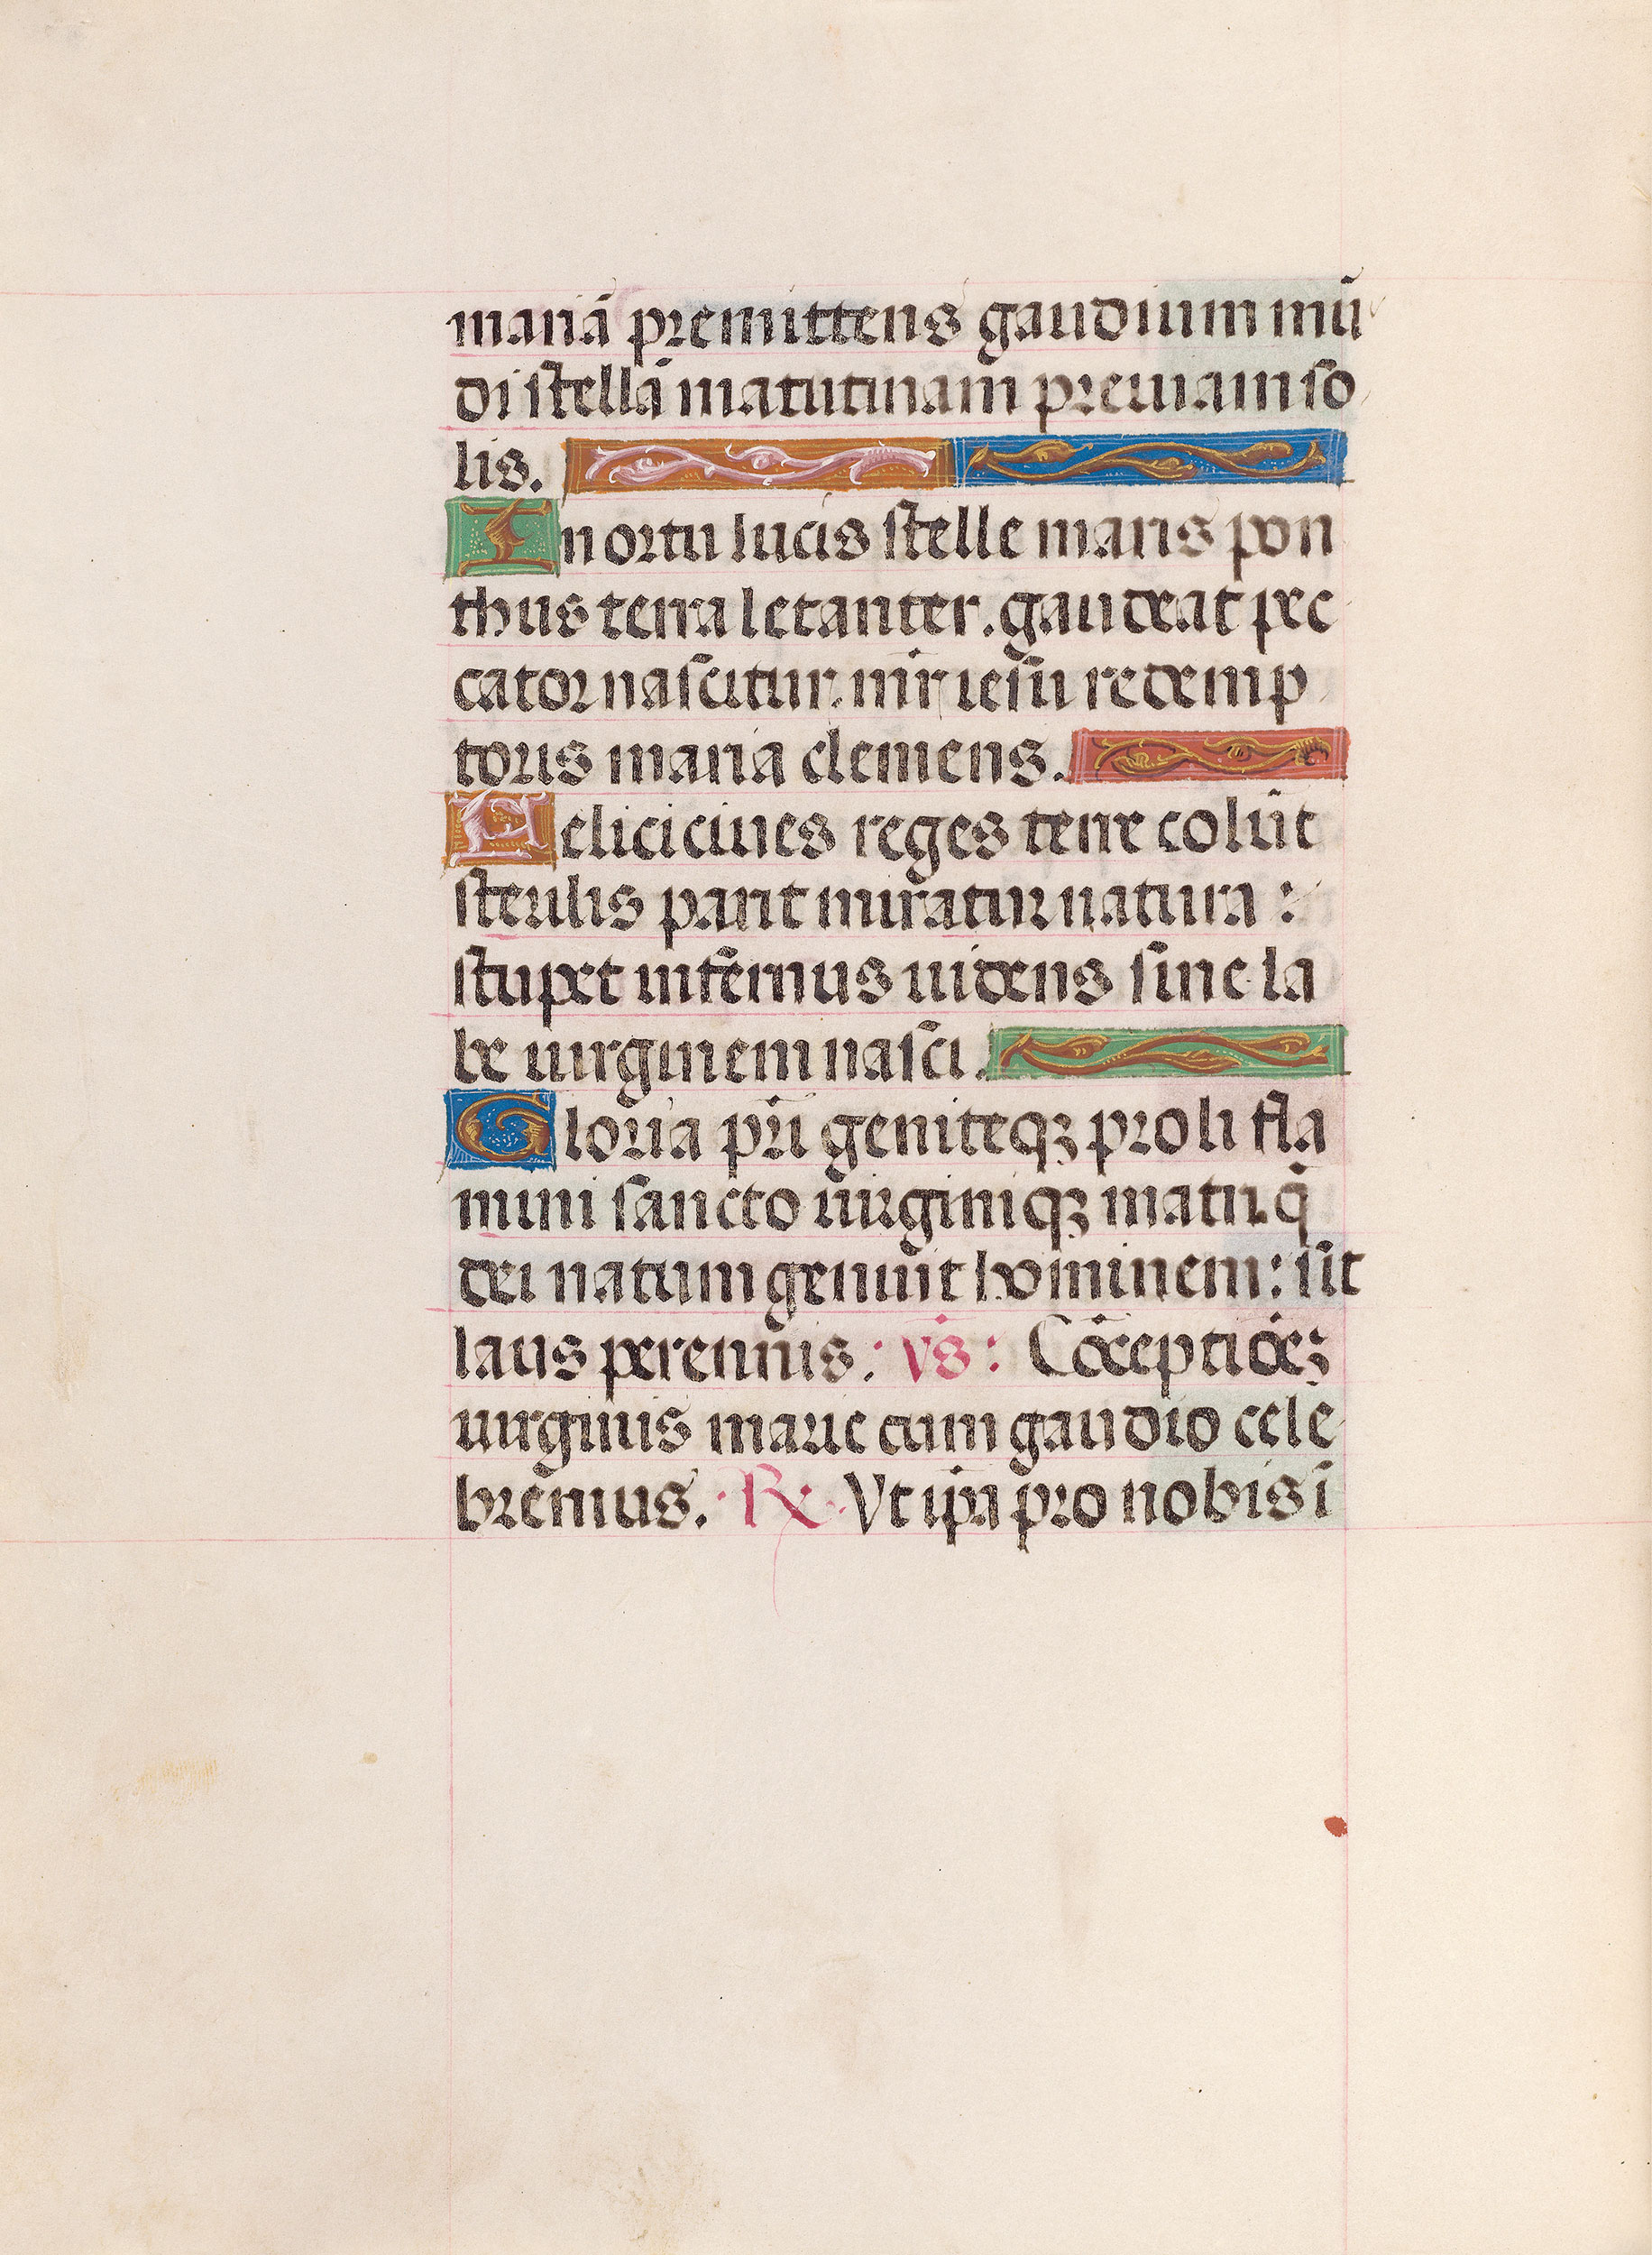 mariā premittens gaudium mū
di stellā matutinam preuiam so
lis.
In ortu lucis stelle maris pon
thus terra letanter. gaudeat pec
cator nascitur. mr̄ iesu redemp
toris maria clemens.
Celici ciues reges terre colūt
sterilis parit miratur natura :
stupet infernus uidens sine la
be uirginem nasci.
Gloria pr̄i geniteqꝫ proli fla
mini sancto uirginiqꝫ matri. q̄
dei natum genuit hominem: sit
laus perennis: vs: Cōceptiōeꝫ
uirginis marie cum gaudio cele
bremus. ℟. Vt ip̄a pro nobis ī